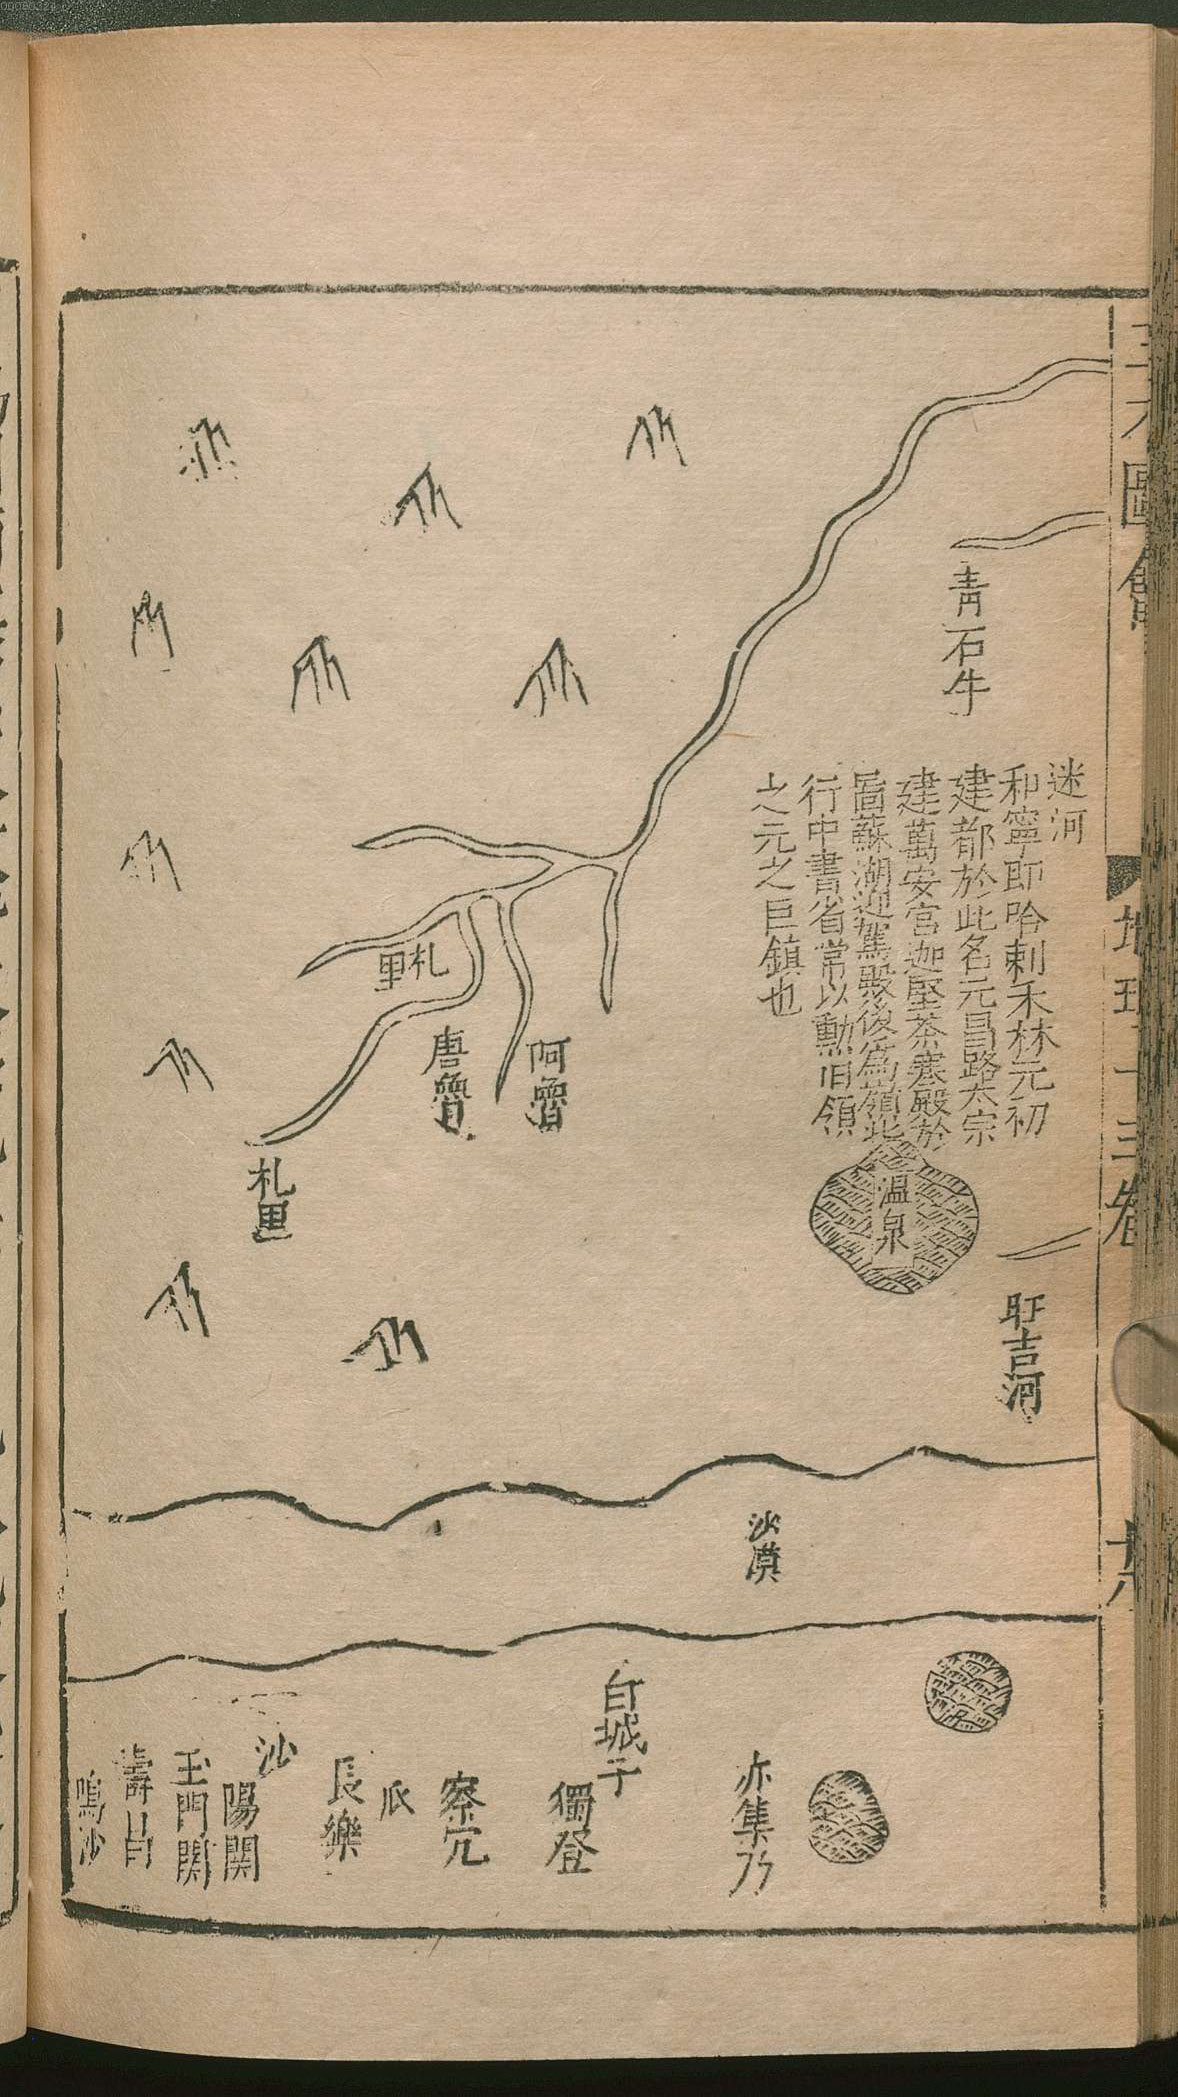 00080324
三才圖會
地理十三卷
青石牛
迷河
和寧即哈剌禾林元初
建都於此名元昌路太宗
建萬安宮迦堅茶寒殿於
圖蘇湖迎駕殿後為嶺北
行中書省常以勳旧領
之元之巨鎮也
温泉
盯吉河
札里
阿魯
唐魯
札里
沙漠
亦集乃
白城子
獨登
察冗
瓜
長樂
沙
陽関
玉門関
壽昌
鳴沙